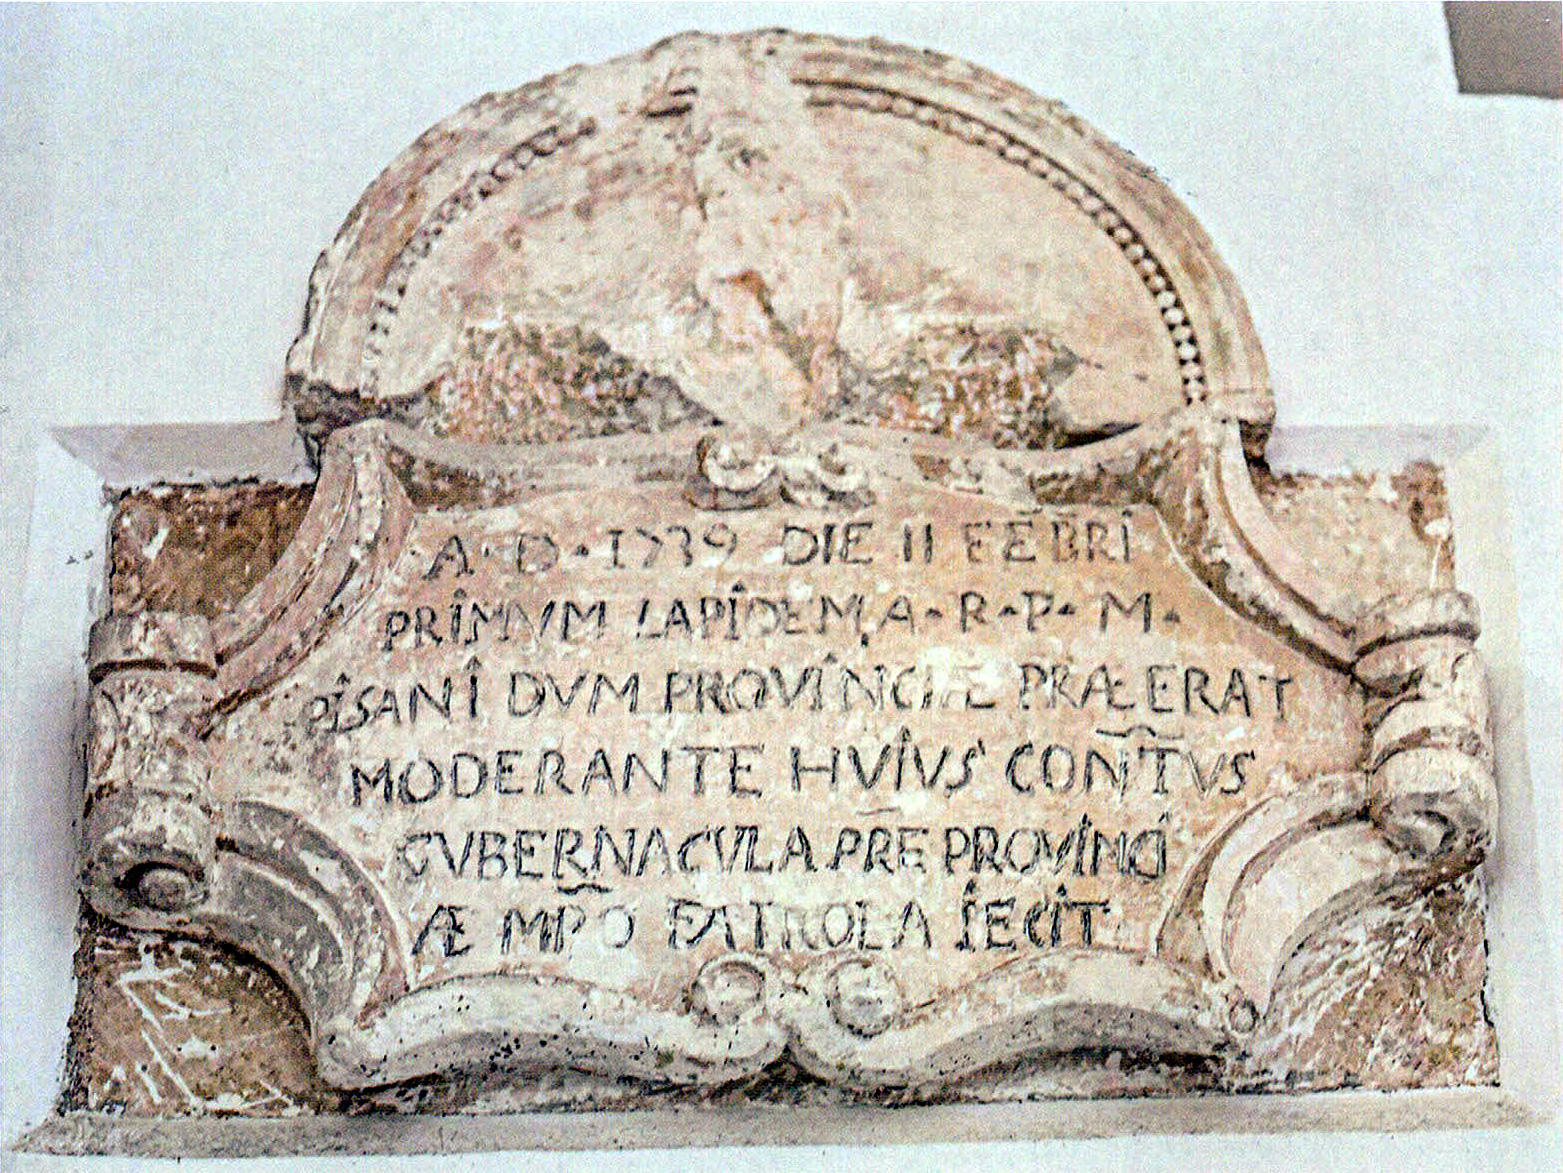 A·D·1739 DIE 11 FEBRI
PRIMVM LAPIDEM A·R·P·M·
PISANI DVM PROVINCIÆ PRÆERAT
MODERANTE HVIVS CONTVS
GVBERNACVLA PRE PROVINCI
Æ MPO FATROLA FECIT